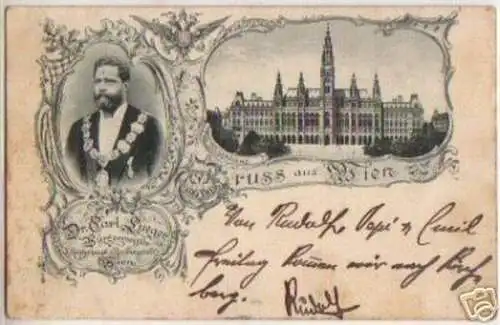 Gruss aus Wien
Dr. Carl Lueger
Bürgermeister
Wien.
Von Rudolf Pepi u Emil
freitag kommen wir nach Kirch
berg. Rudolf
eBay